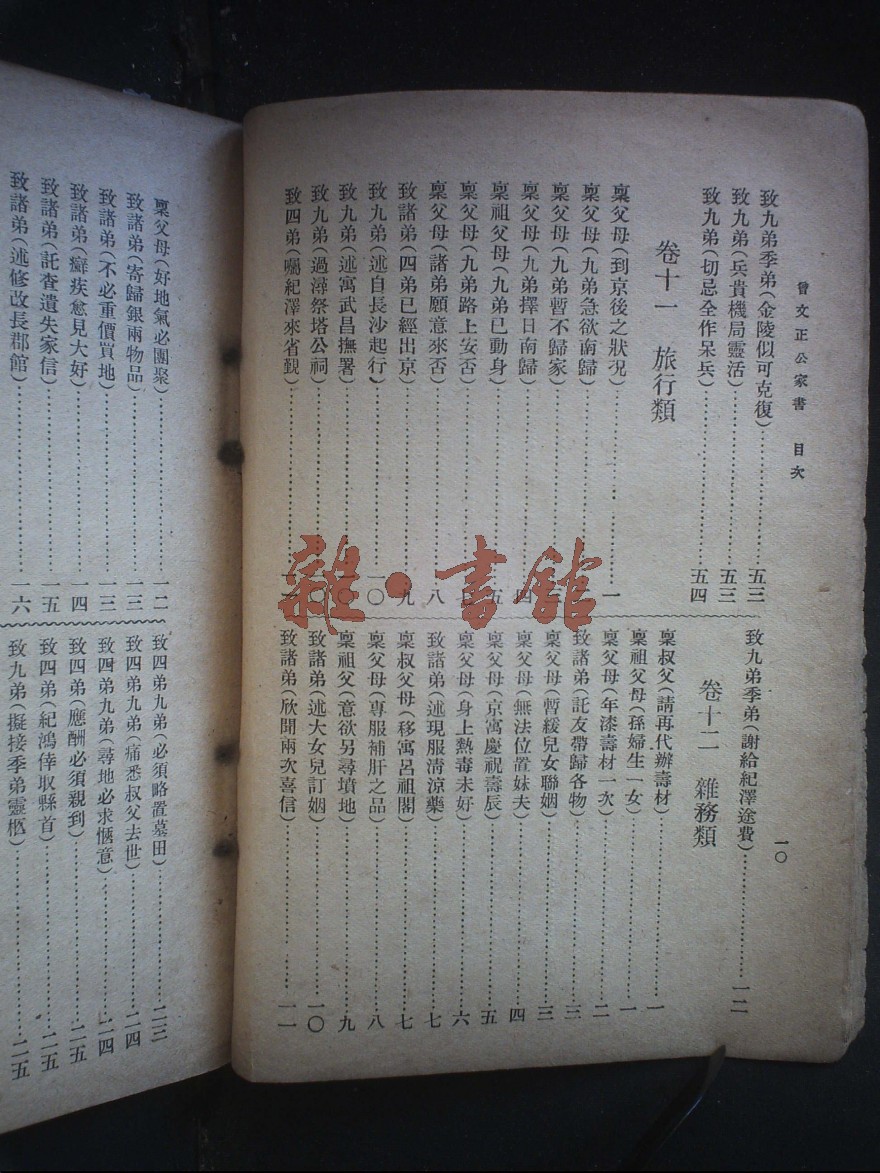 曾文正公家書　目次
一〇
致九弟季弟（金陵似可克復）……五三
致九弟（兵貴機局靈活）……五三
致九弟（切忌全作呆兵）……五四
卷十一　旅行類
稟父母（到京後之狀况）……一
稟父母（九弟急欲南歸）……
稟父母（九弟暫不歸家）……
稟父母（九弟擇日南歸）……四
稟祖父母（九弟已動身）……五
稟父母（九弟路上安否）……
稟父母（諸弟願意來否）……八
致諸弟（四弟已經出京）……九
致九弟（述自長沙起行）……一〇
致九弟（述寓武昌撫署）……一〇
致九弟（過潯祭塔公祠）……一〇
致四弟（囑紀澤來省覲）……一一
致九弟季弟（謝給紀澤途費）……一二
卷十二　雜務類
稟叔父（請再代辦壽材）……一
稟祖父母（孫婦生一女）……一
稟父母（年漆壽材一次）……二
致諸弟（託友帶歸各物）……三
稟父母（暫緩兒女聯姻）……三
稟父母（無法位置妹夫）……四
稟父母（京寓慶祝壽辰）……五
稟父母（身上熱毒未好）……六
致諸弟（述現服清涼藥）……七
稟叔父母（移寓呂祖閣）……七
稟父母（專服補肝之品）……八
稟祖父（意欲另尋墳地）……九
致諸弟（述大女兒訂姻）……一〇
致諸弟（欣聞兩次喜信）……一一
稟父母（好地氣必團聚）……一二
致諸弟（寄歸銀兩物品）……一三
致諸弟（不必重價買地）……一三
致諸弟（癬疾愈見大好）……一四
致諸弟（託查遺失家信）……一五
致諸弟（述修改長郡館）……一六
致四弟九弟（必須略置墓田）……二三
致四弟九弟（痛悉叔父去世）……二四
致四弟九弟（尋地必求愜意）……二四
致四弟（應酬必須親到）……二五
致四弟（紀鴻倖取縣首）……二五
致九弟（擬接季弟靈柩）……二五
雜·書館